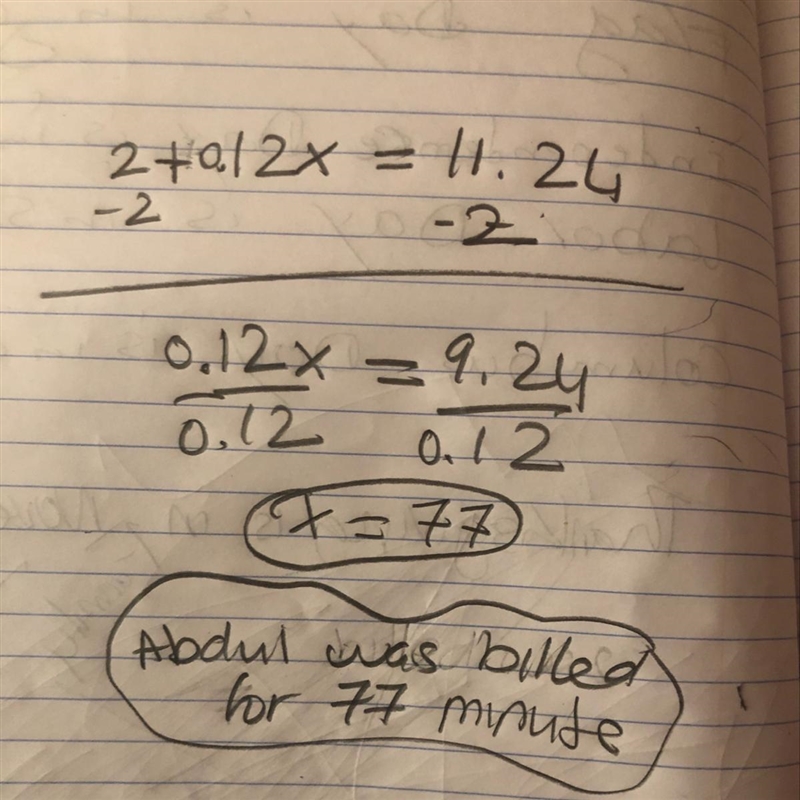 2+0.12x = 11.24
-2 -2
0.12x = 9.24
0.12 0.12
x = 77
Abdul was billed
for 77 minute